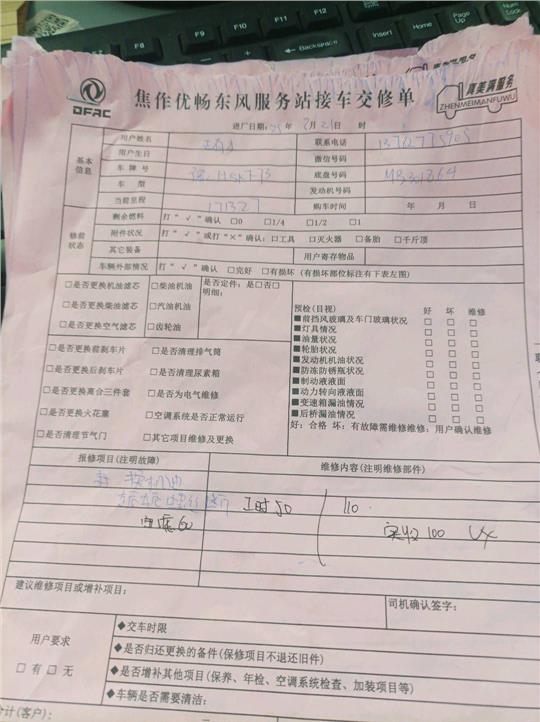 F8 F9 F10 F11 F12 Insert Home Page Up Num Lock
Backspace
DFAC
焦作优畅东风服务站接车交修单
真美满服务
ZHENMEIMANFUWU
进厂日期: 25年 2月21日 时
基本信息
用户姓名 联系电话
用户生日 微信号码
车牌号 底盘号码
车型 发动机号码
当前里程 171327 购车时间 年 月 日
修前状态
剩余燃料 打“√”确认 □0 □1/4 □1/2 □1
附件状况 打“√”或打“×”确认: □工具 □灭火器 □备胎 □千斤顶
其它装备 用户寄存物品
车辆外部情况 打“√”确认 □完好 □有损坏 (有损坏部位标注有下表左图)
□是否更换机油滤芯 □柴油机油 是否定件: 是□否□
明细:
□是否更换柴油滤芯 □汽油机油
□是否更换空气滤芯 □齿轮油
□是否更换前刹车片 □是否清理排气筒
□是否更换后刹车片 □是否清理尿素箱
□是否更换离合三件套 □是否为电气维修
□是否更换火花塞 □空调系统是否正常运行
□是否清理节气门 □其它项目维修及更换
预检(目视) 好 坏 维修
■前挡风玻璃及车门玻璃状况 □ □ □
■灯具情况 □ □ □
■油量状况 □ □ □
■轮胎状况 □ □ □
■发动机机油状况 □ □ □
■防冻防锈瓶状况 □ □ □
■制动液液面 □ □ □
■动力转向液液面 □ □ □
■变速箱漏油情况 □ □ □
■后桥漏油情况 □ □ □
好: 合格 坏: 有故障需维修维修: 用户确认维修
报修项目(注明故障) 维修内容(注明维修部件)
换机油
工时50 110
60 实收100 Vx
建议维修项目或增补项目:
司机确认签字:
用户要求
□有□无
◆交车时限
◆是否归还更换的备件(保修项目不退还旧件)
◆是否增补其他项目(保养、年检、空调系统检查、加装项目等)
◆车辆是否需要清洁:
合计(客户):